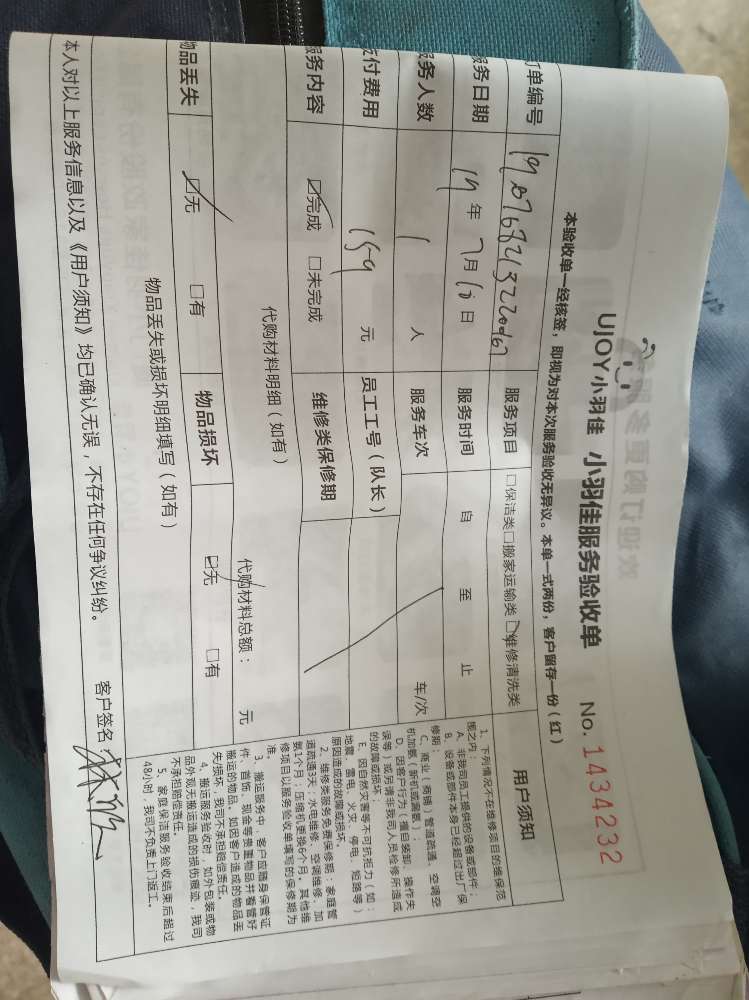 UJOY小羽佳 小羽佳服务验收单 No. 1434232
本验收单一经核签，即视为对本次服务验收无异议。本单一式两份，客户留存一份（红）
订单编号 服务项目 □保洁类□搬家运输类☑维修清洗类
服务日期 19年7月10日 服务时间 自 至 止
服务人数 1 人 服务车次 车/次
支付费用 159 元 员工工号（队长）
服务内容 ☑完成 □未完成 维修类保修期
代购材料明细（如有） 代购材料总额： 元
物品丢失 ☑无 □有 物品损坏 ☑无 □有
物品丢失或损坏明细填写（如有）
本人对以上服务信息以及《用户须知》均已确认无误，不存在任何争议纠纷。 客户签名：
用户须知
1、下列情况不在维修项目的维保范
围之内：
A、非我司员工提供的设备或部件；
B、设备或部件本身已经超过出厂保
修期；
C、商业（商铺）管道疏通，空调空
机加氨（新机或漏氨）；
D、因客户行为（擅自装卸、操作失
误等）或另请非我司人员检修所造成
的故障或损坏；
E、因自然灾害等不可抗拒力（如：
地震、雷电、火灾、停电、短路等）
原因造成的故障或损坏。
2、维修类服务免费保修期：家庭管
道疏通3天；水电维修、空调维修、加
氨1个月；压缩机更换6个月。其他维
修项目以服务验收单填写的保修期为
准。
3、搬运服务中，客户应随身保管证
件、首饰、现金等贵重物品并看管好
搬运的物品。如因客户造成的物品丢
失/损坏，我司不承担赔偿责任。
4、搬运服务验收时，如外包装或物
品外观无搬运造成的损伤痕迹，我司
不承担赔偿责任。
5、家庭保洁服务验收结束后超过
48小时，我司不负责上门返工。